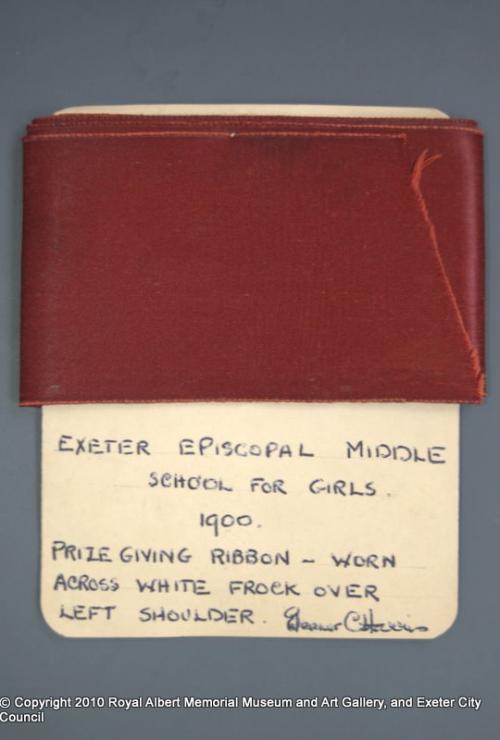 EXETER EPISCOPAL MIDDLE
SCHOOL FOR GIRLS.
1900.
PRIZE GIVING RIBBON – WORN
ACROSS WHITE FROCK OVER
LEFT SHOULDER.
© Copyright 2010 Royal Albert Memorial Museum and Art Gallery, and Exeter City
Council